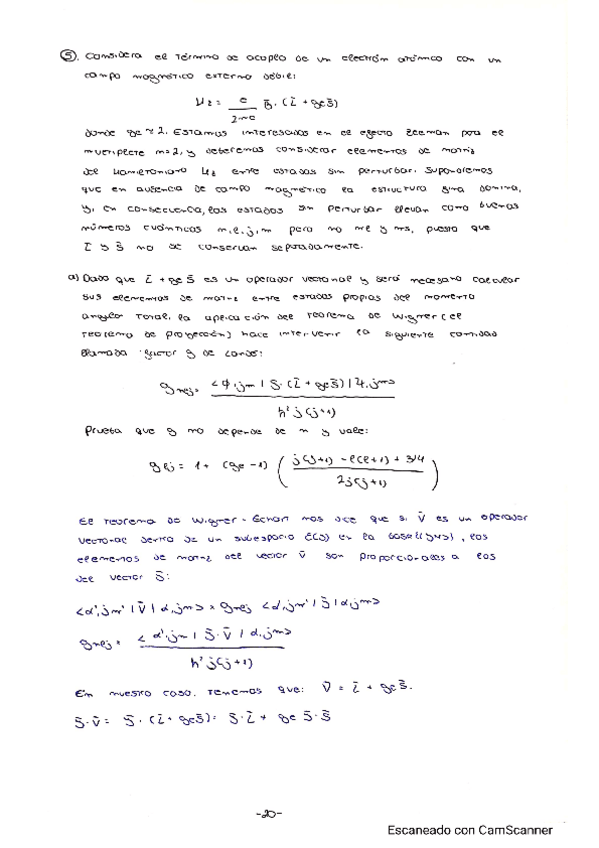 ⑤. Considera el término de acoplo de un electrón atómico con un
campo magnético externo débil:
Hz = e/2mc B̄·(L̄ + geS̄)
donde ge ≈ 2. Estamos interesados en el efecto Zeeman para el
multiplete n=2, y deberemos considerar elementos de matriz
del Hamiltoniano Hz entre estados sin perturbar. Supondremos
que en ausencia de campo magnético la estructura fina domina,
y, en consecuencia, los estados sin perturbar llevan como buenos
números cuánticos n, l, j, m pero no ml y ms, puesto que
L̄ y S̄ no se conservan separadamente.
a) Dado que L̄ + geS̄ es un operador vectorial y será necesario calcular
sus elementos de matriz entre estados propios del momento
angular total, la aplicación del Teorema de Wigner (el
Teorema de proyección) hace intervenir la siguiente cantidad
llamada factor g de Landé:
gnlj = <ψ, jm | J̄·(L̄ + geS̄) | ψ, jm> / ħ² j(j+1)
Prueba que g no depende de n y vale:
glj = 1 + (ge - 1) ( j(j+1) - l(l+1) + 3/4 / 2j(j+1) )
El teorema de Wigner-Eckart nos dice que si V̄ es un operador
vectorial dentro de un subespacio en la base, los
elementos de matriz del vector V̄ son proporcionales a los
del vector J̄:
<α', jm' | V̄ | α, jm> = gnlj <α', jm' | J̄ | α jm>
gnlj = <α', jm | J̄·V̄ | α, jm> / ħ² j(j+1)
En nuestro caso, tenemos que: V̄ = L̄ + geS̄.
J̄·V̄ = J̄·(L̄ + geS̄) = J̄·L̄ + ge J̄·S̄
-20-
Escaneado con CamScanner